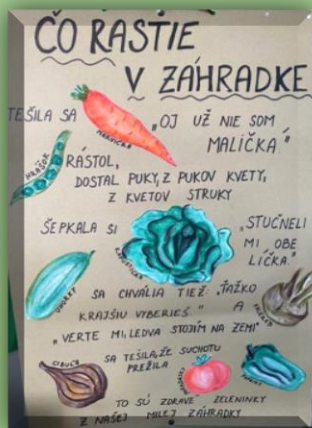 ČO RASTIE
V ZÁHRADKE
TEŠILA SA MRKVIČKA „OJ UŽ NIE SOM
MALIČKÁ."
HRÁŠOK RÁSTOL,
DOSTAL PUKY, Z PUKOV KVETY,
Z KVETOV STRUKY
ŠEPKALA SI KAPUSTIČKA „STUČNELI
MI OBE
LÍČKA."
UHORKY SA CHVÁLIA TIEŽ: „ŤAŽKO
KRAJŠIU VYBERIEŠ." A KALERÁB
„VERTE MI, LEDVA STOJÍM NA ZEMI"
CIBUĽA SA TEŠILA, ŽE SUCHOTU
PREŽILA
TO SÚ ZDRAVÉ ZELENINKY
Z NAŠEJ MILEJ ZÁHRADKY